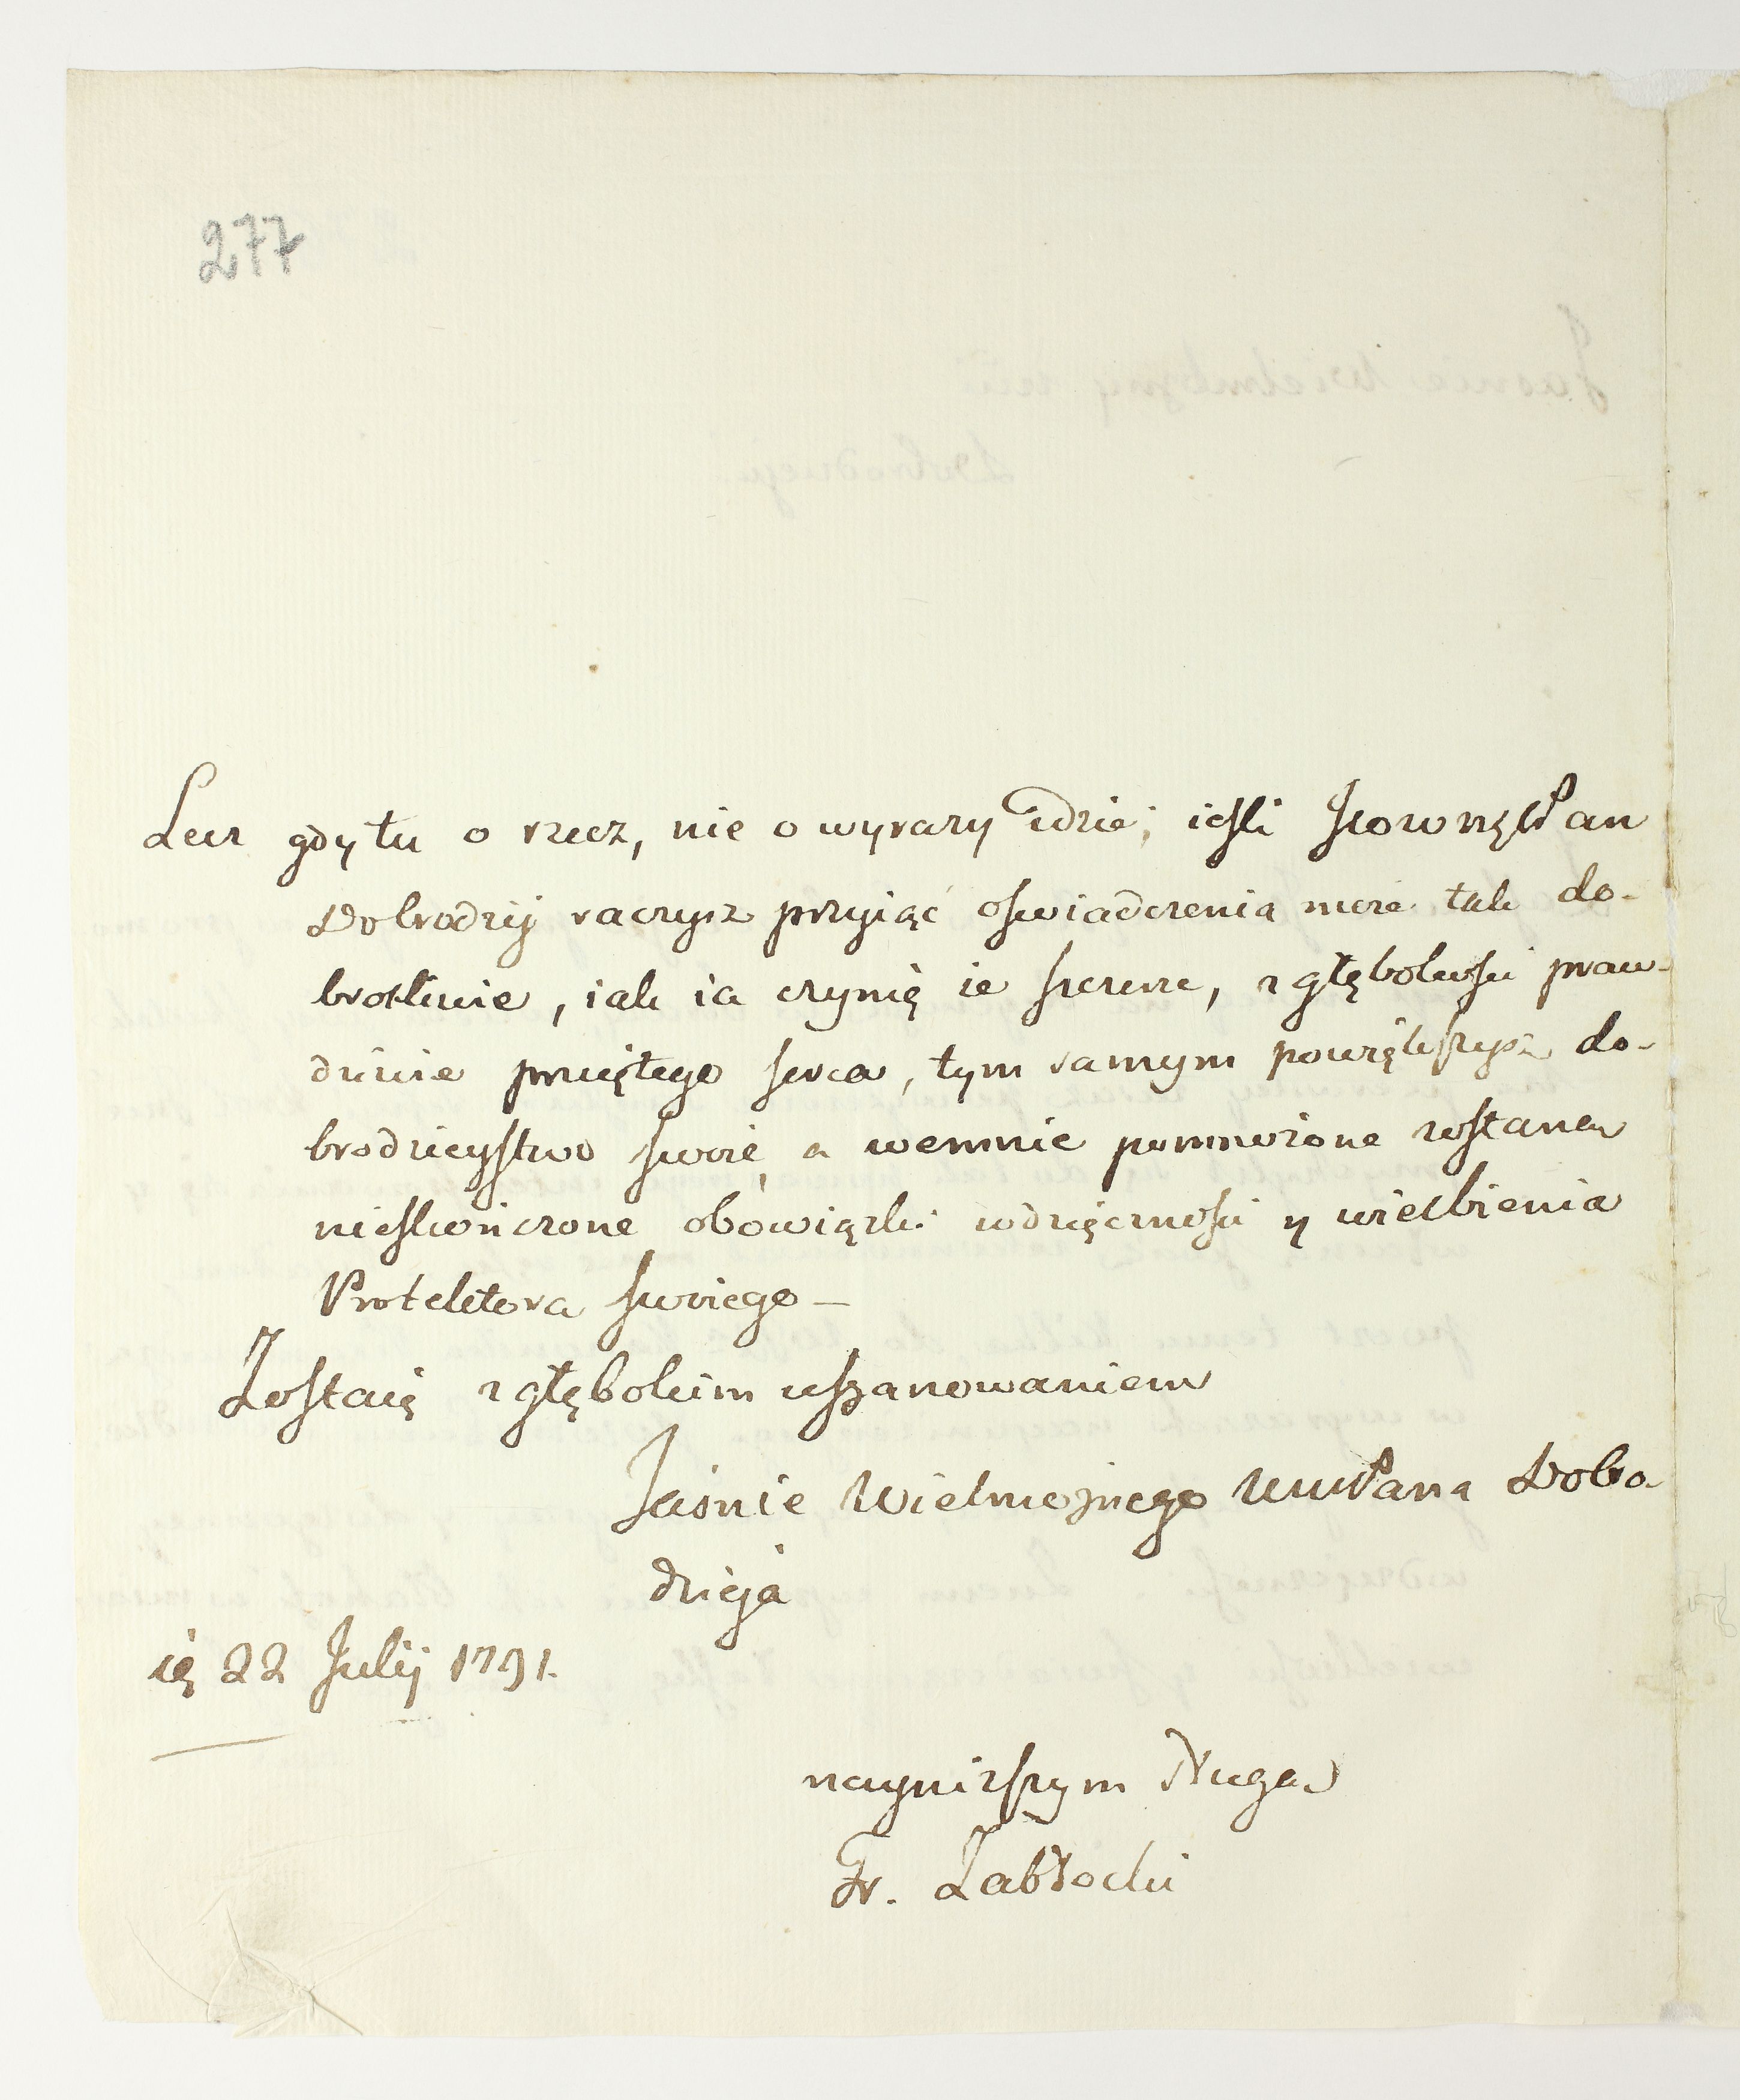 277
Lecz gdy tu o rzecz, nie o wyrazy idzie; iesli JWWMPan
Dobrodziej raczysz przyiąć oswiadczenia moie tak do-
brotliwie, iak ia czynię ie szczerze, z głębokosci praw-
dziwie przeiętego serca, tym samym powiększysz do-
brodzieystwo swoie, a wemnie pomnożone zostaną
nieskończone obowiązki wdzięcznosci y wielbienia
Protektora swoiego –
Zostaię z głębokim uszanowaniem
Jaśnie Wielmożnego WMPana Dobro
dzieja
22 Julij 1791.
nayniższym Sługą
Fr. Zabłocki